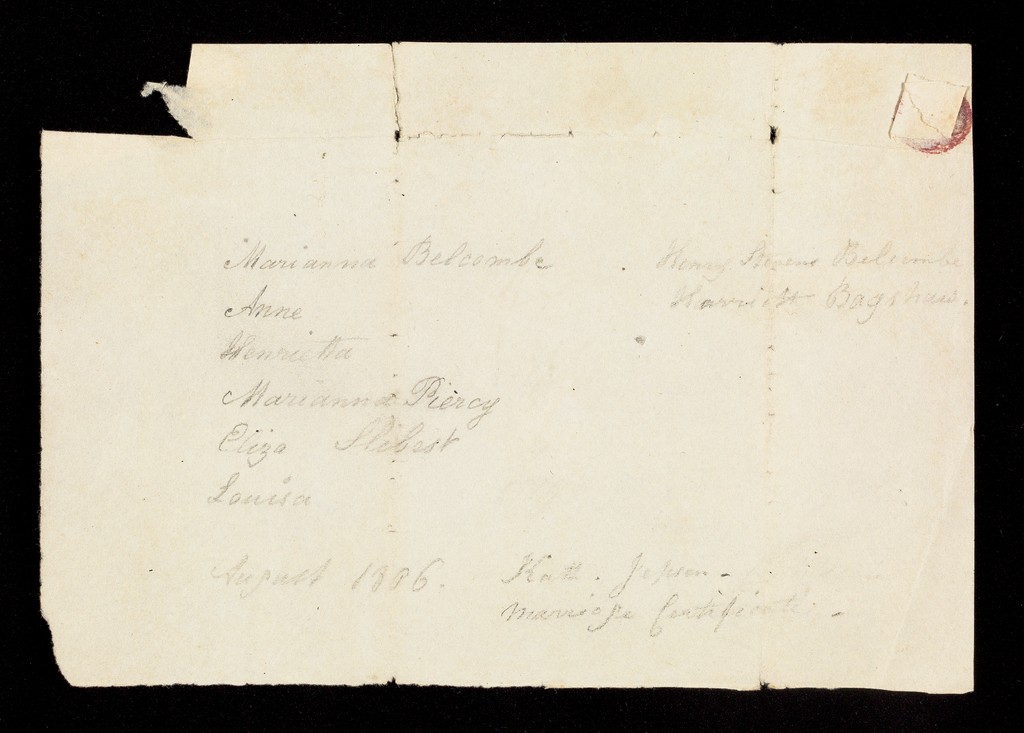 Marianna Belcombe
Anne
Henrietta
Marianna Piercy
Eliza
Louisa
Henry Stevens Belcombe
Harriett Bagshaw.
August 1806.
Kath. Jepson -
Marriage Certificate. -